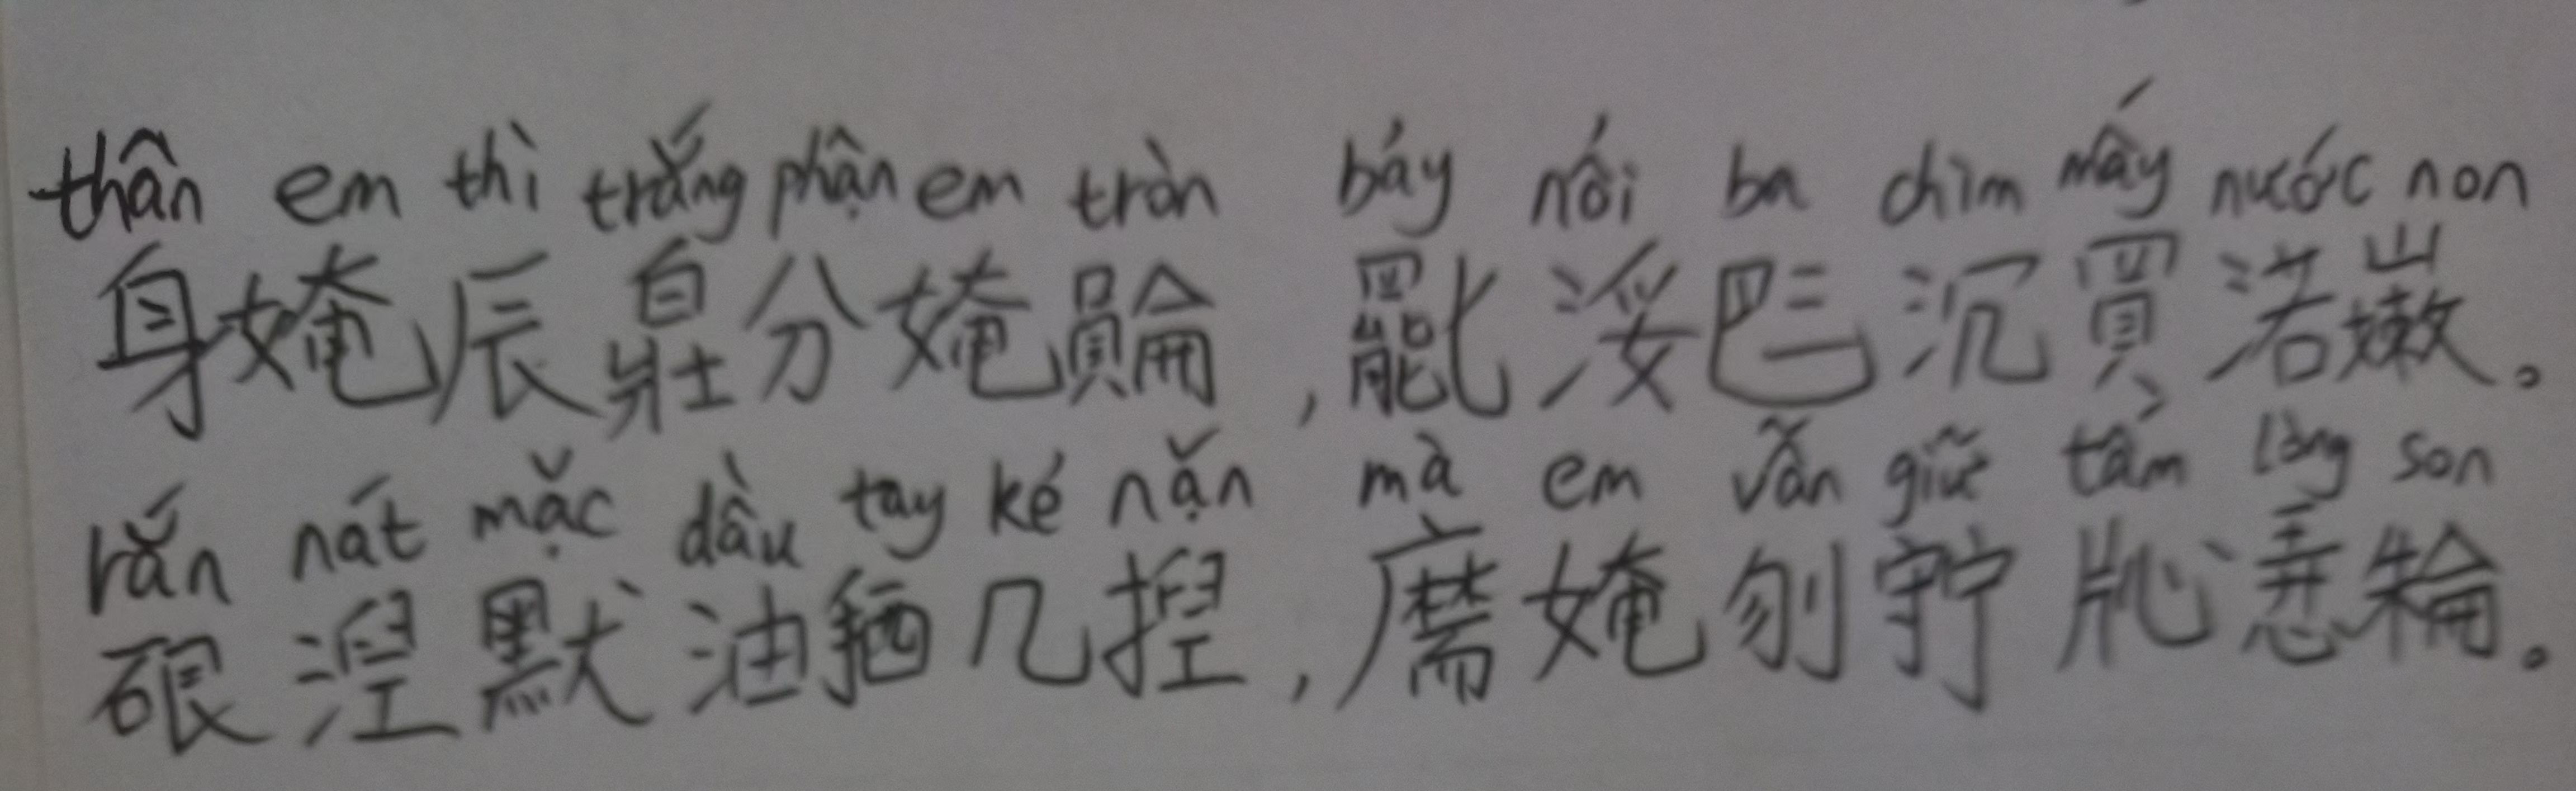 thân em thì trắng phận em tròn báy nối ba chìm mấy nước non
身㛪辰𤽸分㛪𧷺,𦉱浽𠀧沉買渃𡽫。
rắn nát mặc dầu tay ké nặn mà em vẫn giữ tấm lòng son
硍湼默油𢬣几捏,𦓡㛪刎𡨹𢚸𣘃。